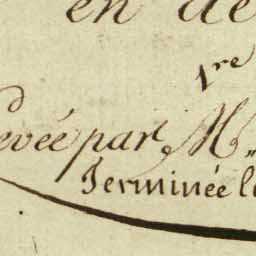 en de
1re
evée par M
Terminée l